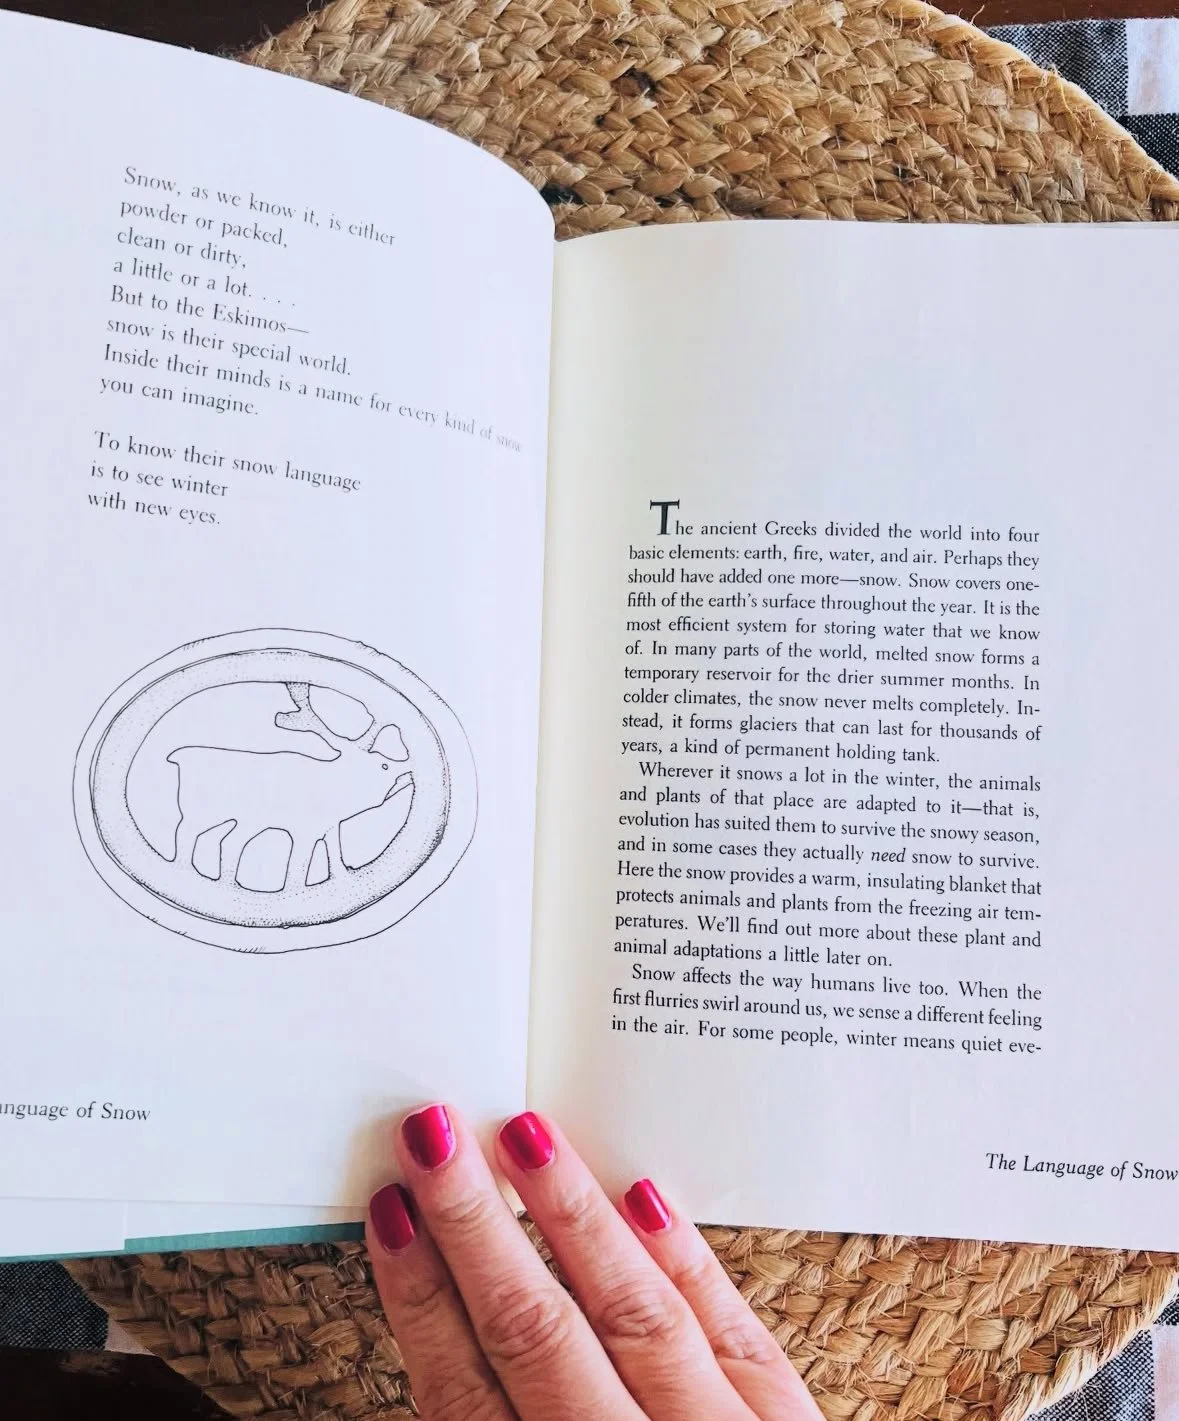 Snow, as we know it, is either
powder or packed,
clean or dirty,
a little or a lot. . . .
But to the Eskimos—
snow is their special world.
Inside their minds is a name for every kind of snow
you can imagine.
To know their snow language
is to see winter
with new eyes.
nguage of Snow
The ancient Greeks divided the world into four
basic elements: earth, fire, water, and air. Perhaps they
should have added one more—snow. Snow covers one-
fifth of the earth's surface throughout the year. It is the
most efficient system for storing water that we know
of. In many parts of the world, melted snow forms a
temporary reservoir for the drier summer months. In
colder climates, the snow never melts completely. In-
stead, it forms glaciers that can last for thousands of
years, a kind of permanent holding tank.
Wherever it snows a lot in the winter, the animals
and plants of that place are adapted to it—that is,
evolution has suited them to survive the snowy season,
and in some cases they actually need snow to survive.
Here the snow provides a warm, insulating blanket that
protects animals and plants from the freezing air tem-
peratures. We'll find out more about these plant and
animal adaptations a little later on.
Snow affects the way humans live too. When the
first flurries swirl around us, we sense a different feeling
in the air. For some people, winter means quiet eve-
The Language of Snow